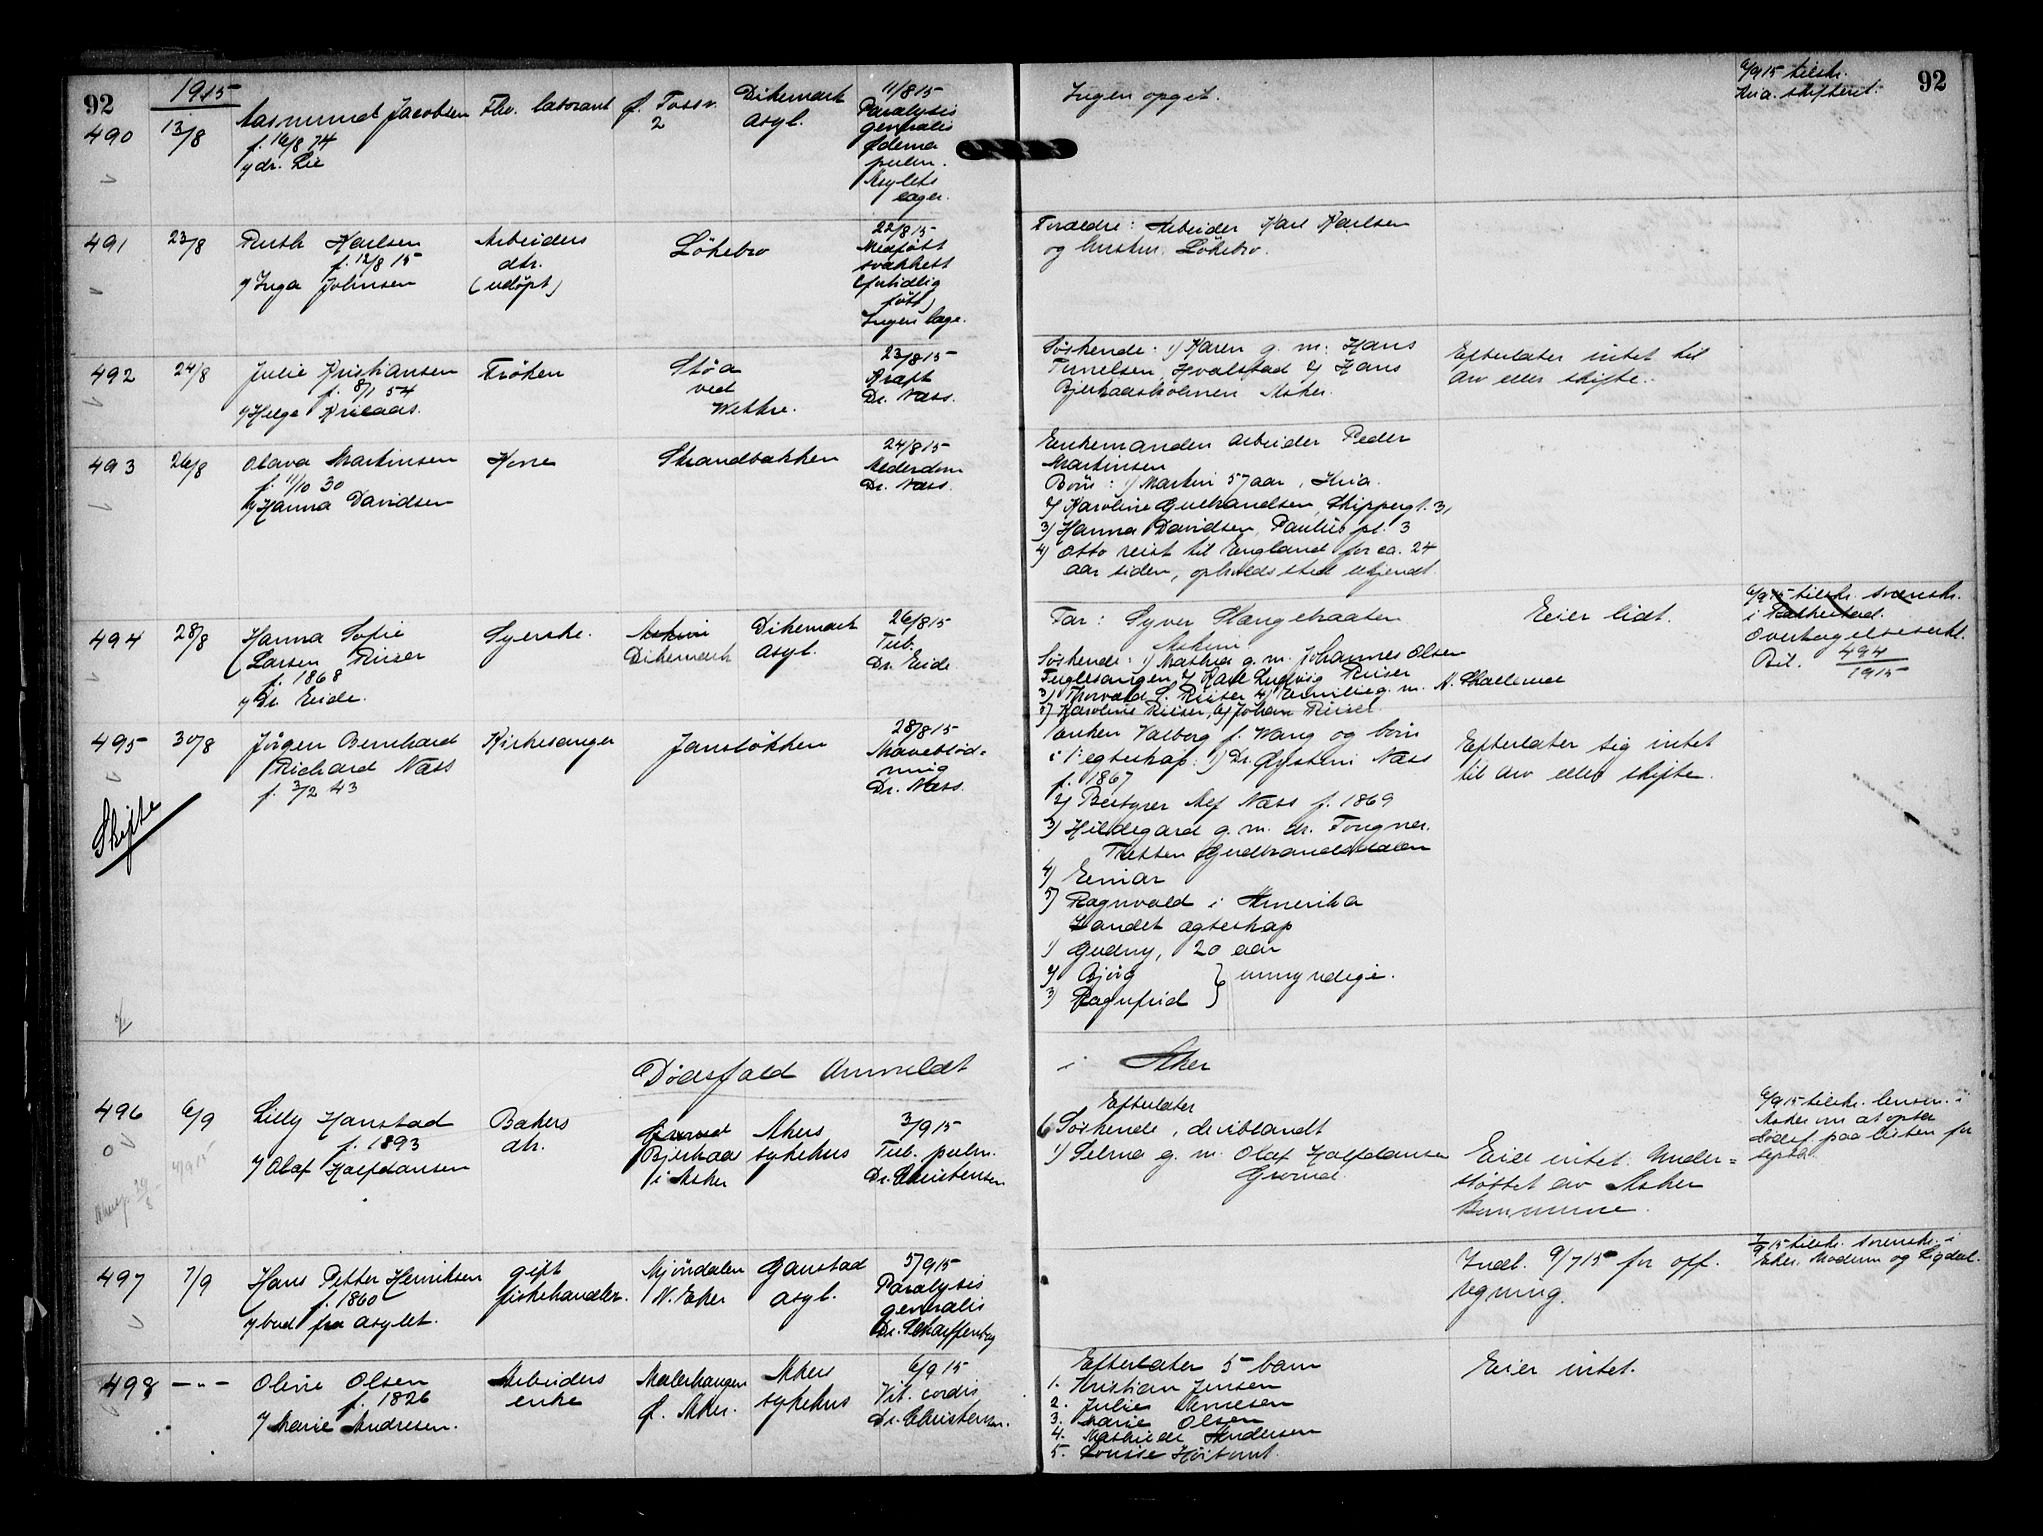 92
1915
490
13/8
Aasmund Jacobsen
f. 16/8 74
v/ dr. Lie
Fhv. laborant
Ø. Tossv.
2
Dikemark
asyl.
11/8 15
Paralysis
generalis
Ødema
pulm.
Asylets
læger.
Ingen opget.
6/9 15 tilskr.
Kria. skifteret.
92
491
23/8
Ruth Karlsen
f. 12/8 15
v/ Inga Johnsen
Arbeiders
dtr.
(udöpt)
Lökebro
22/8 15
Medfött
svakhett
(fortidlig
fött)
Ingen læge.
Forældre: Arbeider Karl Karlsen
og hustru, Lökebro.
492
24/8
Julie Kristiansen
f. 8/1 54
v/ Helge
Fröken
Støa
ved
Wettre.
23/8 15
Kræft
Dr. Næss.
Søskende: 1) Karen g. m. Hans
Hvalstad 2) Hans
Asker.
Efterlater intet til
arv eller skifte.
493
26/8
Olava Martinsen
f. 11/10 30
v/ Hanna Davidsen
Kone
Strandbakken
24/8 15
Alderdom
Dr. Næss.
Enkemanden arbeider Peder
Martinsen
Börn: 1) Martin 57 aar, Kria.
2) Karoline Gulbrandsen, Skippergt. 31
3) Hanna Davidsen, Paulus pl. 3
4) Otto reist til England for ca. 24
aar siden, opholdssted ukjendt.
494
28/8
Hanna Sofie
Larsen Riiser
f. 1868
v/ Dr. Eide.
Syerske.
Askim
Dikemark
Dikemark
asyl.
26/8 15
Tub.
Dr. Eide.
Far: Syver Slangebraaten
Askim
Søskende: 1) Mathea g. m. Johannes Olsen
Fuglesangen, 2) Karl Ludvig Riiser
3) Thorvald S. Riiser 4) Emilie g. m. N.
5) Karoline Riiser, 6) Johan Riiser
Eier lidt.
6/9 15 tilskr. lensm.
i
Overtagelseserkl.
Bil. 494
1915
495
30/8
Jörgen Bernhard
Richard Næss
f. 3/2 43
Kirkesanger
Jansløkken
28/8 15
Maveblöd-
ning
Dr. Næss.
Enken Valborg f. Wang og börn
i 1. egteskap: 1) Dr. Øystein Næss
f. 1867
2) Bestyrer Alf Næss f. 1869
3) Hildegard g. m. dr. Tongner.
Tretten Gudbrandsdalen
4) Einar
5) Ragnvald i Amerika
2andet egteskap
1) Gudny, 20 aar
2) Bjørg
3) Ragnfrid
} umyndige.
Efterlater sig intet
til arv eller skifte.
Skifte
Dödsfald Anmeldt
i Aker
496
6/9
Lilly Hanstad
f. 1893
v/ Olaf Halfdansen
Bakers
dtr.
Grönud
Bjerkaas
i Asker
Akers
sykehus
3/9 15
Tub. pulm.
Dr. Christensen
Efterlater
6 Søskende, deriblandt
1) Selma g. m. Olaf Halfdansen
Eier intet. Under-
støttet av Asker
kommune.
6/9 15 tilskr. lensm. i
Asker om at opta
dödsf. paa listen for
septbr.
497
7/9
Hans Petter Henriksen
f. 1860
v/ bud fra asylet.
gift
fiskehandler.
Mjöndalen
N. Eker
Gaustad
asyl.
5/9 15
Paralysis
generalis
Dr. Scharffenberg
Indl. 9/7 15 for off.
regning.
7/9 15 tilskr. sorenskr. i
Eker, Modum og Sigdal.
498
— " —
Oline Olsen
f. 1826
v/ Marie Andresen.
Arbeiders
enke
Malerhaugen
Ø. Aker.
Akers
sykehus
6/9 15
Vit. cordis
Dr. Christensen.
Efterlater 5 barn
1. Kristian Jensen
2. Julie Arnesen
3. Marie Olsen
4. Mathilde Andersen
5. Lovise
Eier intet.